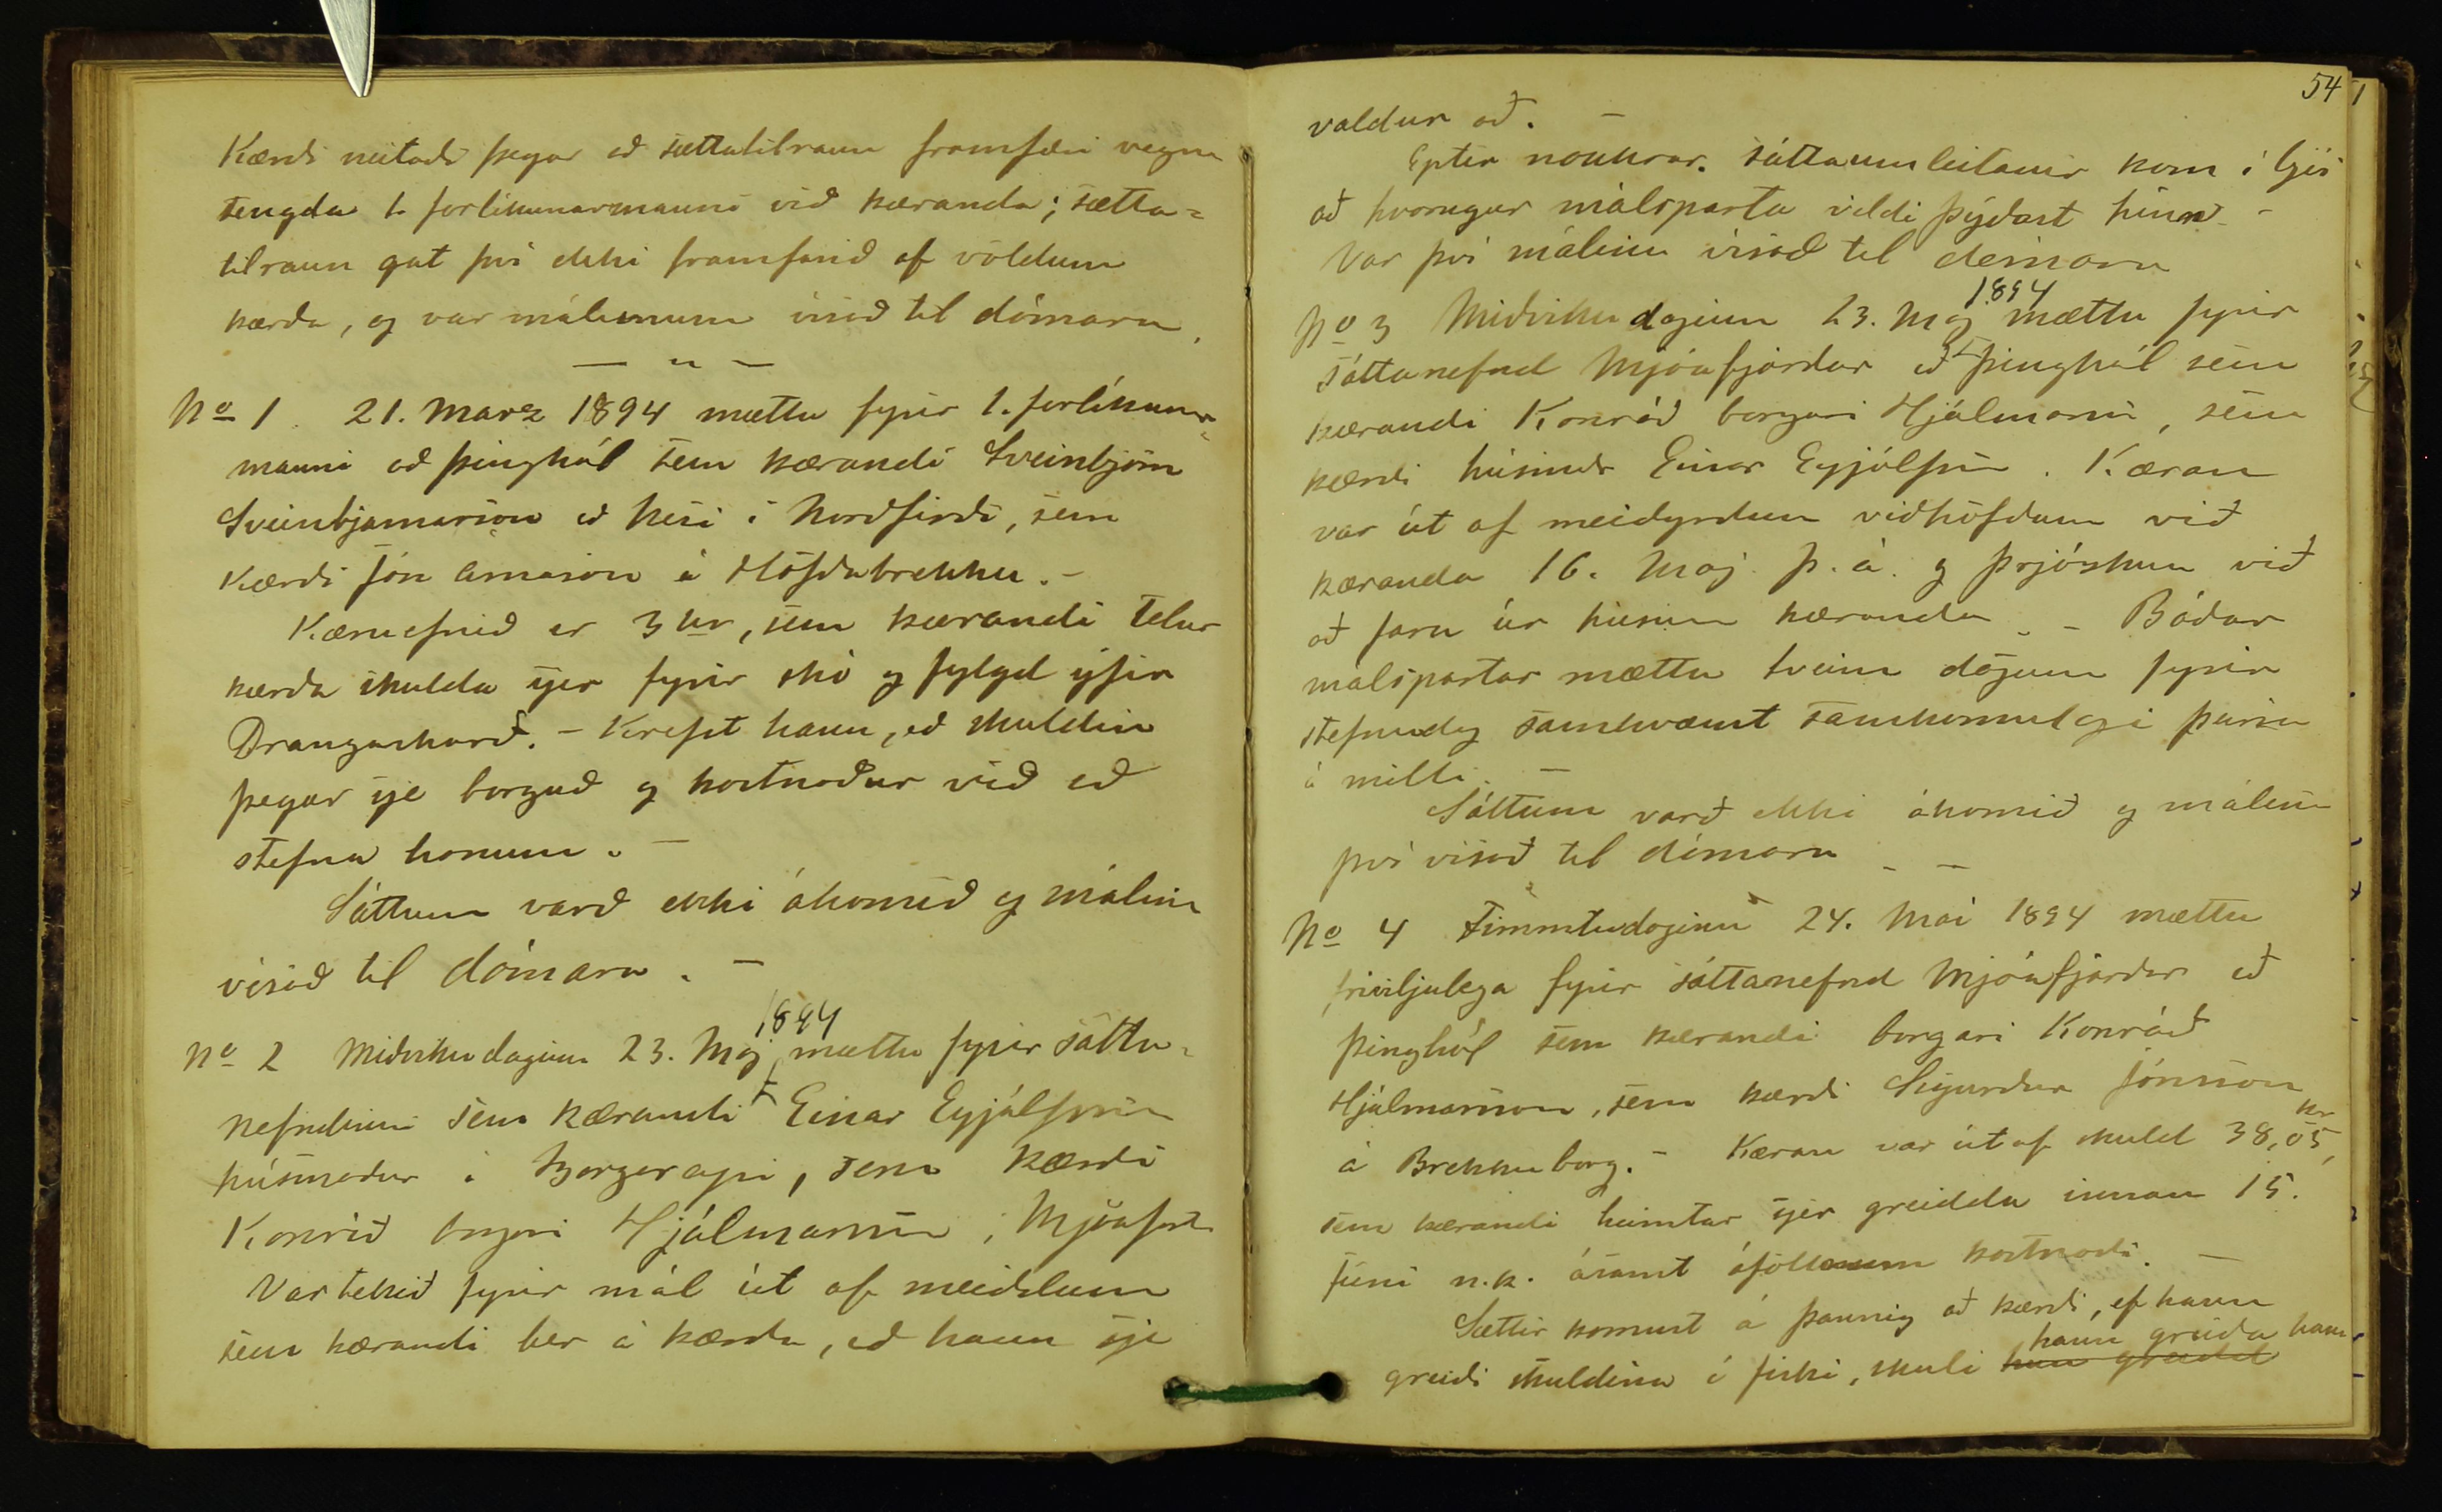 Kærdi neitadi þegar að sættatilraun framfæri vegna
tengda 1. forlikunarmanns við kæranda; sætta=
tilraun gat því ekki framfarið af völdum
kærða, og var málinu vísað til dómara.
— " —
No 1. 21. Marz 1894 mættu fyrir 1. forlíkunar=
manni að Þinghól sem kærandi Sveinbjörn
Sveinbjarnarson að Nesi í Nordfirdi, sem
Kærdi Jón Árnason á Höfðabrekku. –
Kæruefnið er 3 kr, sem kærandi telur
kærða skulda sjer fyrir skó og fylgd yfir
Drangaskarð. – Krefst hann, að skuldin
þegar sje borguð og kostnaður við að
stefna honum. –
Sáttum varð ekki ákomið og málinu
vísað til dómara. –
No 2 Miðvikudaginn 23. Maj 1894 mættu fyrir sátta=
nefndinni sem kærandi Einar Eyjólfsson
húsmaður í Borgareyri, sem kærdi
Konráð borgari Hjálmarsson í Mjóaf.
Var tekið fyrir mál út af meiðslum
sem kærandi ber á kærða, að hann sje
54
valdur að. –
Eptir nokkrar sáttaumleitanir kom í ljós
að hvorugur málsparta vildi þýðast hinn –
Var því málinu vísað til dómara
No 3 Miðvikudaginn 23. Maj 1894 mættu fyrir
sáttanefnd Mjóafjarðar að Þinghól sem
kærandi Konráð borgari Hjálmarsson, sem
kærdi húsmann Einar Eyjólfsson. Kæran
var út af meidyrdum viðhöfdum við
kæranda 16. Maj þ. á. og þrjósku við
að fara úr húsum kæranda. – Báðar
málspartar mættu tveim dögum fyrir
stefnudag samkvæmt samkomulagi þeirra
á milli. –
Sáttum varð ekki ákomið og málinu
því vísað til dómara – –
No 4 Fimmtudaginn 24. Mai 1894 mættu
fríviljulega fyrir sáttanefnd Mjóafjarðar að
Þinghól sem kærandi borgari Konráð
Hjálmarsson, sem kærdi Sigurður Jónsson
á Brekkuborg. – Kæran var út af skuld 38,05 kr,
sem kærandi heimtar sjer greidda innan 15.
júní n.k. ásamt áföllnum kostnaði. –
Sættir komust á þannig að kærdi, ef hann
greiði skuldina í fiski, skuli hann greiða hann